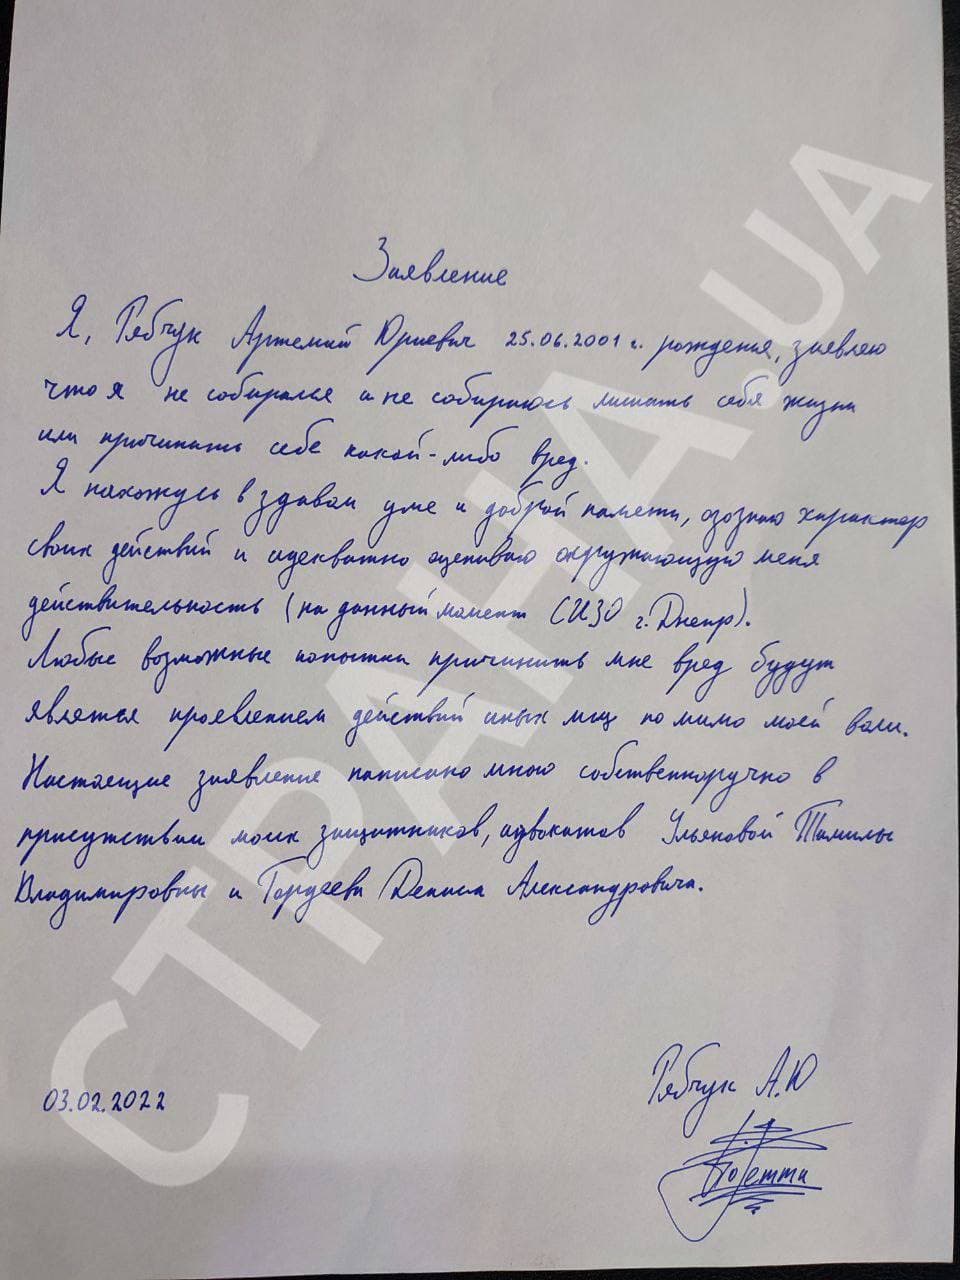 Заявление
Я, Рябчук Артемий Юриевич 25.06.2001 г. рождения, заявляю
что я не собирался и не собираюсь лишать себя жизни
или причинать себе какой-либо вред.
Я нахожусь в здавом уме и доброй памяти, озознаю характер
своих действий и адекватно оцениваю окружающую меня
действительность (на данный момент СИЗО г. Днепр).
Любые возможные попытки причинить мне вред будут
являтся проявлением действий иных лиц по мимо моей воли.
Настоящие заявление написано мною собственноручно в
присутствии моих защитников, адвокатов Ульяновой Тамилы
Владимировны и Гордеева Дениса Александровича.
Рябчук А.Ю
03.02.2022
СТРАНА.UA